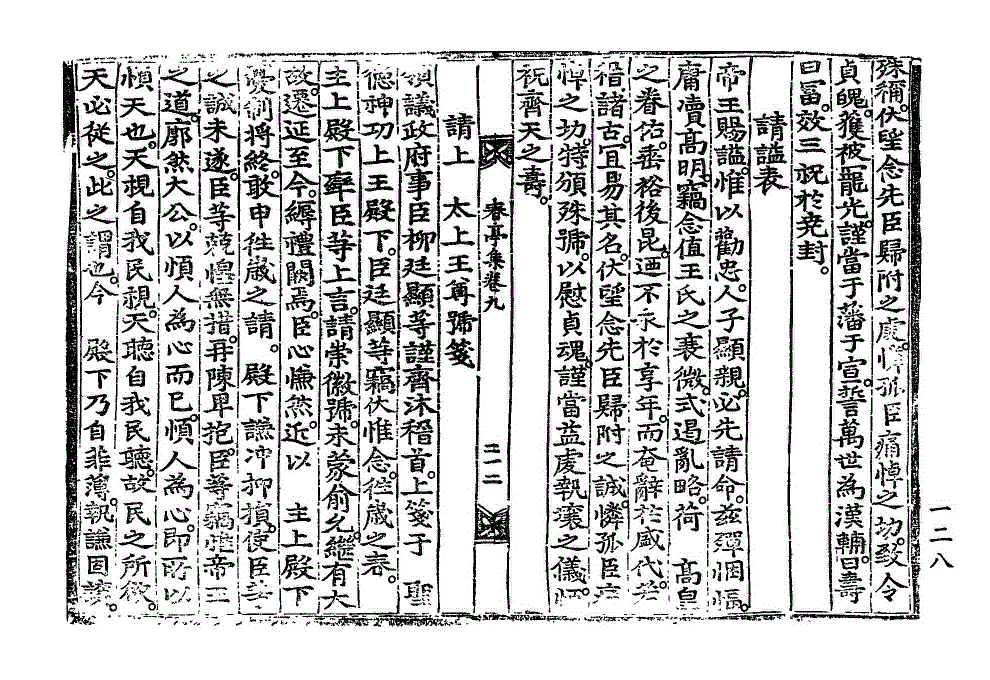 殊稱。伏望念先臣歸附之虔。憐孤臣痛悼之切。致令
貞魄。獲被寵光。謹當于藩于宣。誓萬世為漢輔。曰壽
曰富。效三祝於堯封。
請謚表
帝王賜謚。惟以勸忠。人子顯親。必先請命。玆殫悃愊。
庸瀆高明。竊念值王氏之衰微。式遏亂略。荷 高皇
之眷佑。垂裕後昆。迺不永於享年。而奄辭於盛代。若
稽諸古。宜易其名。伏望念先臣歸附之誠。憐孤臣哀
悼之切。特頒殊號。以慰貞魂。謹當益虔執壤之儀。恒
祝齊天之壽。
春亭集卷九
三一二
請上 太上王尊號箋
領議政府事臣柳廷顯等謹齊沐稽首。上箋于 聖
德神功上王殿下。臣廷顯等竊伏惟念。徃歲之春。
主上殿下率臣等上言。請崇徽號。未蒙俞允。繼有大
故。遷延至今。縟禮闕焉。臣心慊然。近以 主上殿下
憂制將終。敢申徃歲之請。 殿下謙冲抑損。使臣等
之誠未遂。臣等兢惶無措。再陳卑抱。臣等竊惟帝王
之道。廓然大公。以順人為心而已。順人為心。即所以
順天也。天視自我民視。天聽自我民聽。故民之所欲。
天必從之。此之謂也。今 殿下乃自菲薄。執謙固讓。
一二八